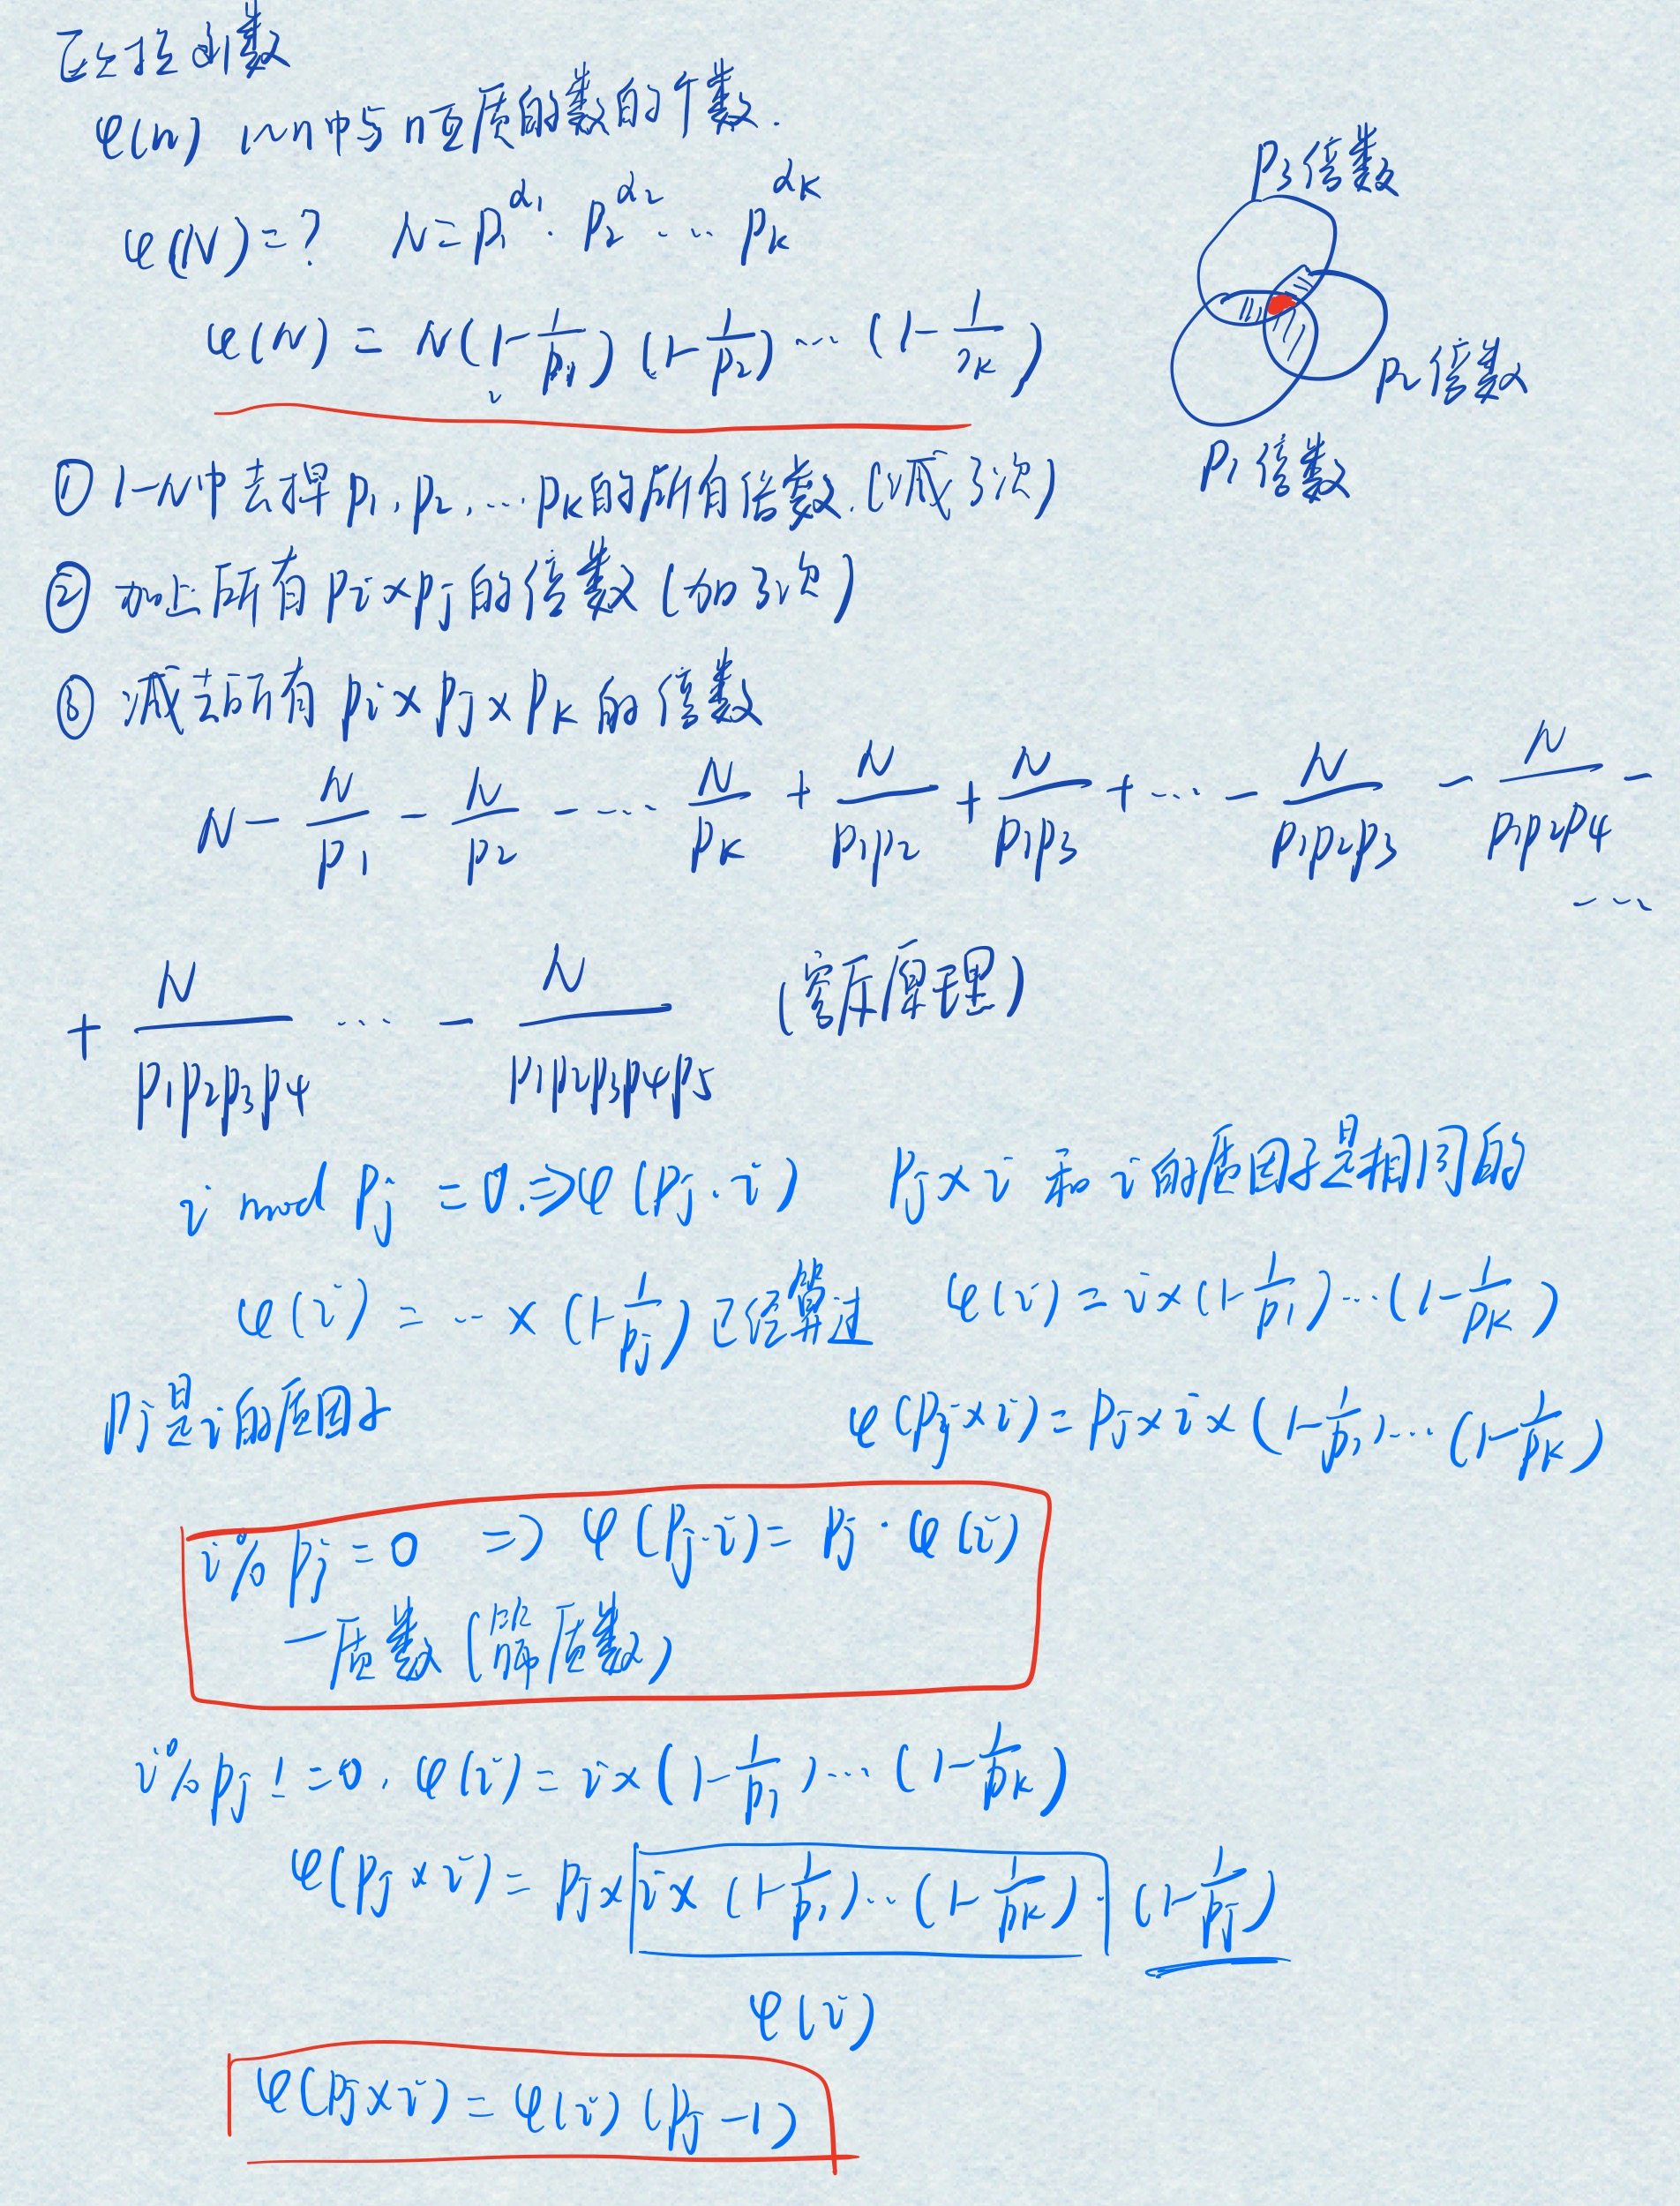 欧拉函数
φ(n) 1~n中与n互质的数的个数.
φ(N)=? N=p₁^α₁·p₂^α₂·…p_k^α_k
φ(N)=N(1-1/p₁)(1-1/p₂)…(1-1/p_k)
p3倍数
p2倍数
p1倍数
① 1-N中去掉p1,p2,…pk的所有倍数.(减了3次)
② 加上所有pi×pj的倍数(加了3次)
③ 减去所有pi×pj×pk的倍数
N-N/p1-N/p2-…N/pk+N/p1p2+N/p1p3+…-N/p1p2p3-N/p1p2p4-…
+N/p1p2p3p4…-N/p1p2p3p4p5 (容斥原理)
i mod pj=0.⇒φ(pj·i) pj×i和i的质因子是相同的
φ(i)=…×(1-1/pj)已经算过 φ(i)=i×(1-1/p1)…(1-1/pk)
pj是i的质因子 φ(pj×i)=pj×i×(1-1/p1)…(1-1/pk)
i%pj=0 ⇒φ(pj·i)=pj·φ(i)
一质数(筛质数)
i%pj!=0,φ(i)=i×(1-1/p1)…(1-1/pk)
φ(pj×i)=pj×i×(1-1/p1)…(1-1/pk)·(1-1/pj)
φ(i)
φ(pj×i)=φ(i)(pj-1)